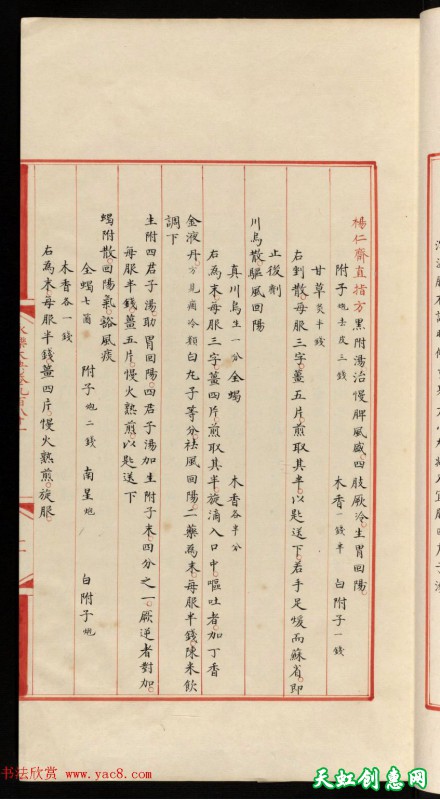 楊仁齋直指方黑附湯治慢脾風感四肢厥冷生胃回陽
附子炮去皮三錢 木香一錢半 白附子一錢
甘草炙半錢
右剉散每服三字薑五片煎取其半以匙送下若手足煖而蘇省即
止後劑
川烏散驅風回陽
真川烏生一分 全蝎 木香各半分
右為末每服三字薑四片煎取其半旋滴入口中嘔吐者加丁香
金液丹方見痼冷類白丸子等分祛風回陽二藥為末每服半錢陳米飲
調下
生附四君子湯助胃回陽四君子湯加生附子末四分之一厥逆者對加
每服半錢薑五片慢火熟煎以匙送下
蝎附散回陽氣豁風痰
全蝎七箇 附子炮二錢 南星炮 白附子炮
木香各一錢
右為末每服半錢薑四片慢火熟煎旋服
书法欣赏 www.yac8.com
天虹创意网